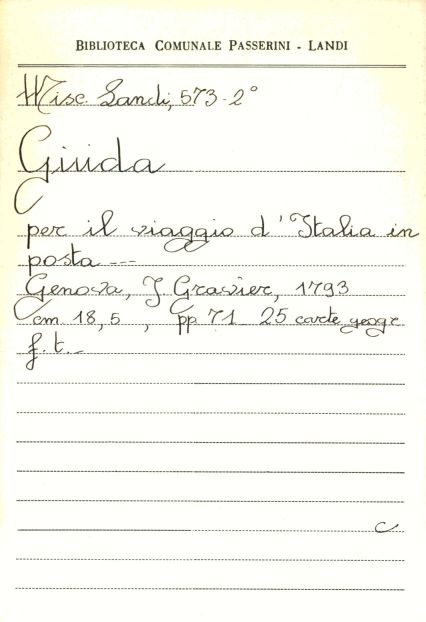 BIBLIOTECA COMUNALE PASSERINI - LANDI
Misc. Landi, 573-2°
Guida
per il viaggio d'Italia in
posta ---
Genova, J. Gravier, 1793
cm 18,5 , pp 71_ 25 carte geogr
f. t._
C